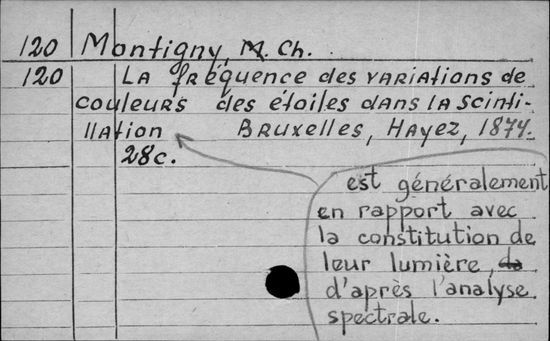 120 Montigny, M. Ch.
120 La fréquence des variations de
couleurs des étoiles dans la scinti-
llation Bruxelles, Hayez, 1874.
28c.
est généralement
en rapport avec
la constitution de
leur lumière, da
d'après l'analyse
spectrale.